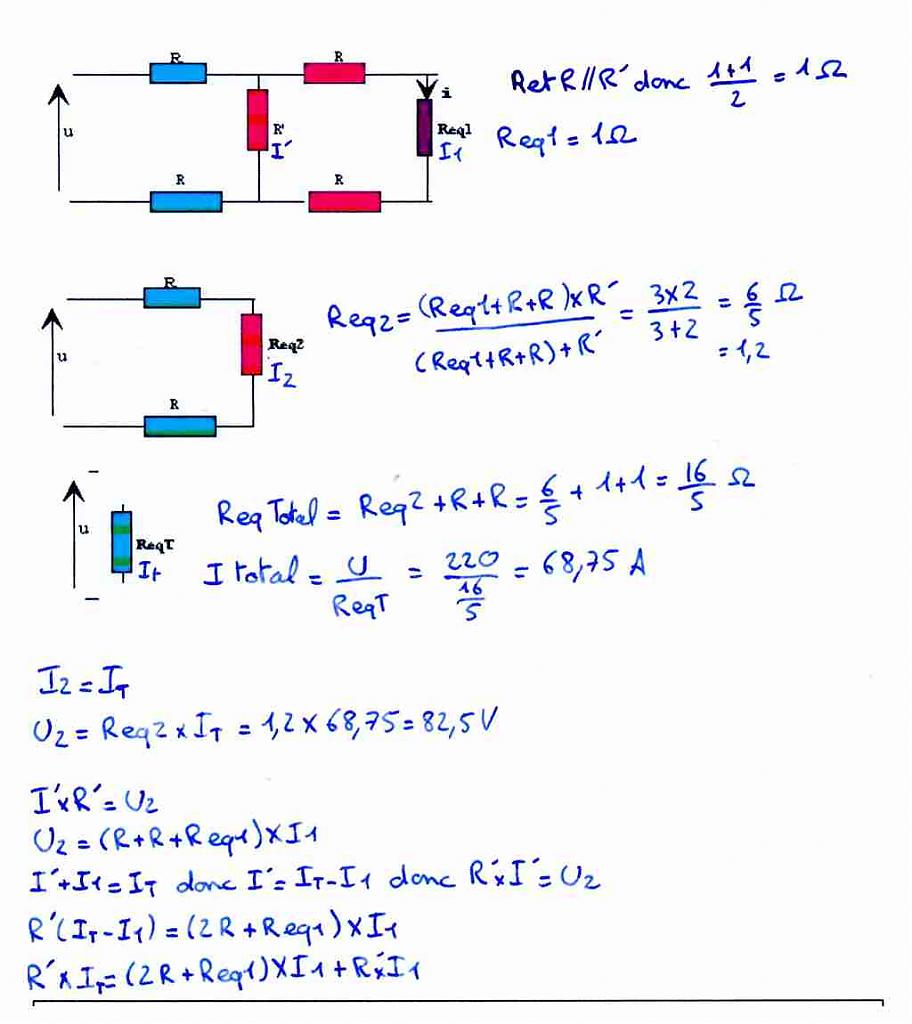 R R
R et R // R' donc 1+1/2 = 1 Ω
u R' i Req1
I' I1
Req1 = 1Ω
R R
R
Req2 = (Req1+R+R)×R'/(Req1+R+R)+R' = 3×2/3+2 = 6/5 Ω
= 1,2
u Req2
I2
R
u ReqT
It
Req Total = Req2 + R + R = 6/5 + 1+1 = 16/5 Ω
I total = U/ReqT = 220/16/5 = 68,75 A
I2 = IT
U2 = Req2 × IT = 1,2 × 68,75 = 82,5 V
I'×R' = U2
U2 = (R+R+Req1)×I1
I'+I1 = IT donc I' = IT-I1 donc R'×I' = U2
R'(IT-I1) = (2R+Req1)×I1
R'×IT = (2R+Req1)×I1+R'×I1